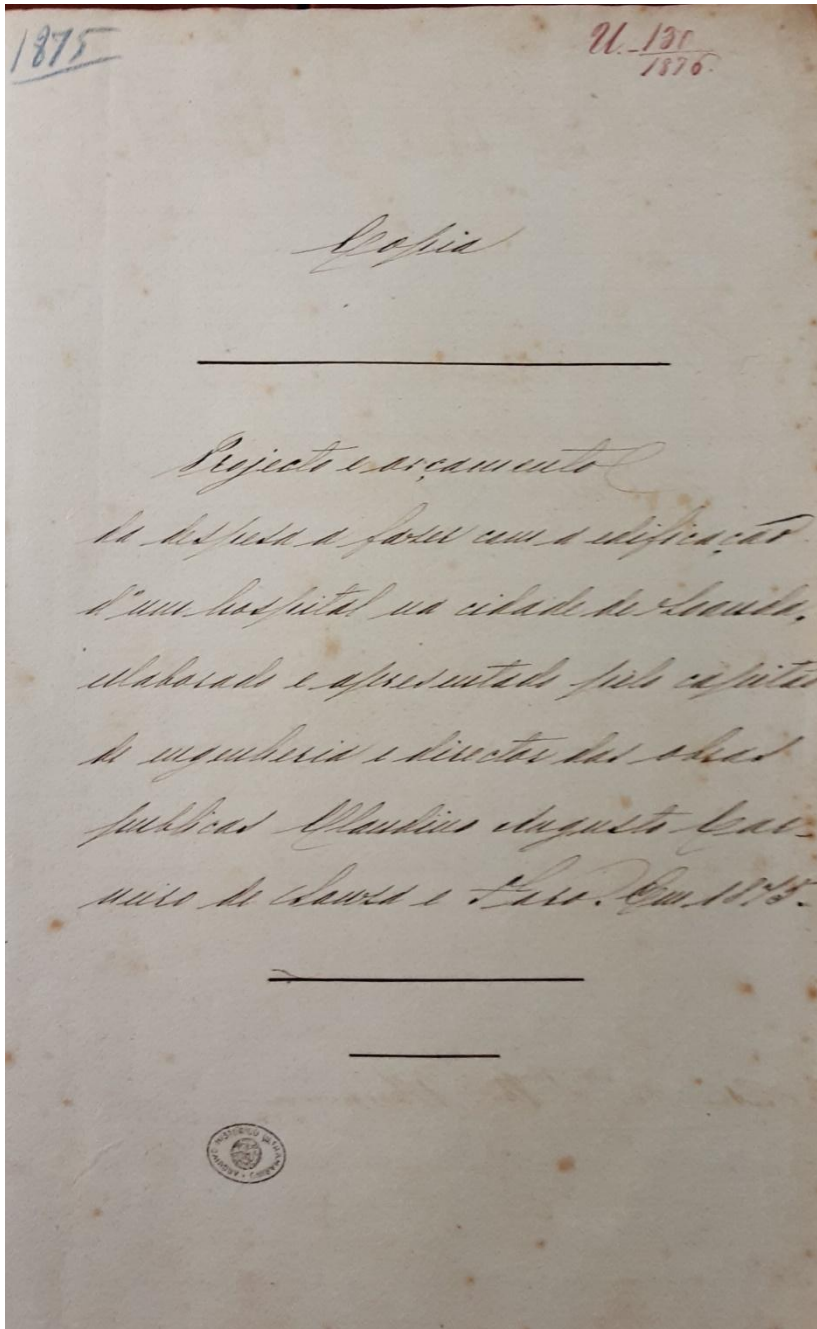 1875
U. 131
1876.
Copia
Projecto e orçamento
da despesa a fazer com a edificação
d'um hospital na cidade de Loanda,
elaborado e apresentado pelo capitão
de engenheria e director das obras
publicas Claudino Augusto Car-
neiro de Sousa e Faro. Em 1875.
ARQUIVO HISTÓRICO ULTRAMARINO